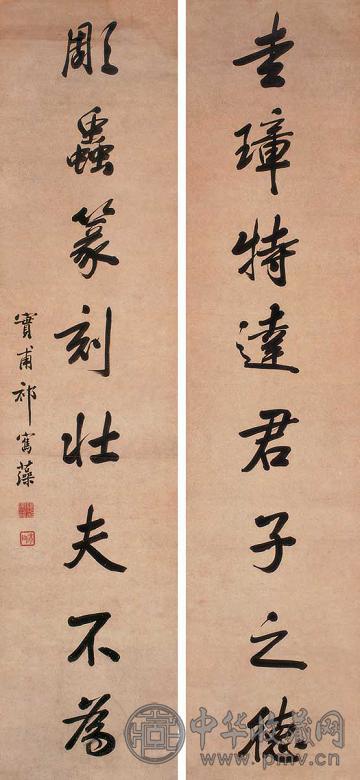 圭璋特達君子之德
彫蟲篆刻壯夫不為
實甫祁寯藻
中华收藏网
www.pmv.cn